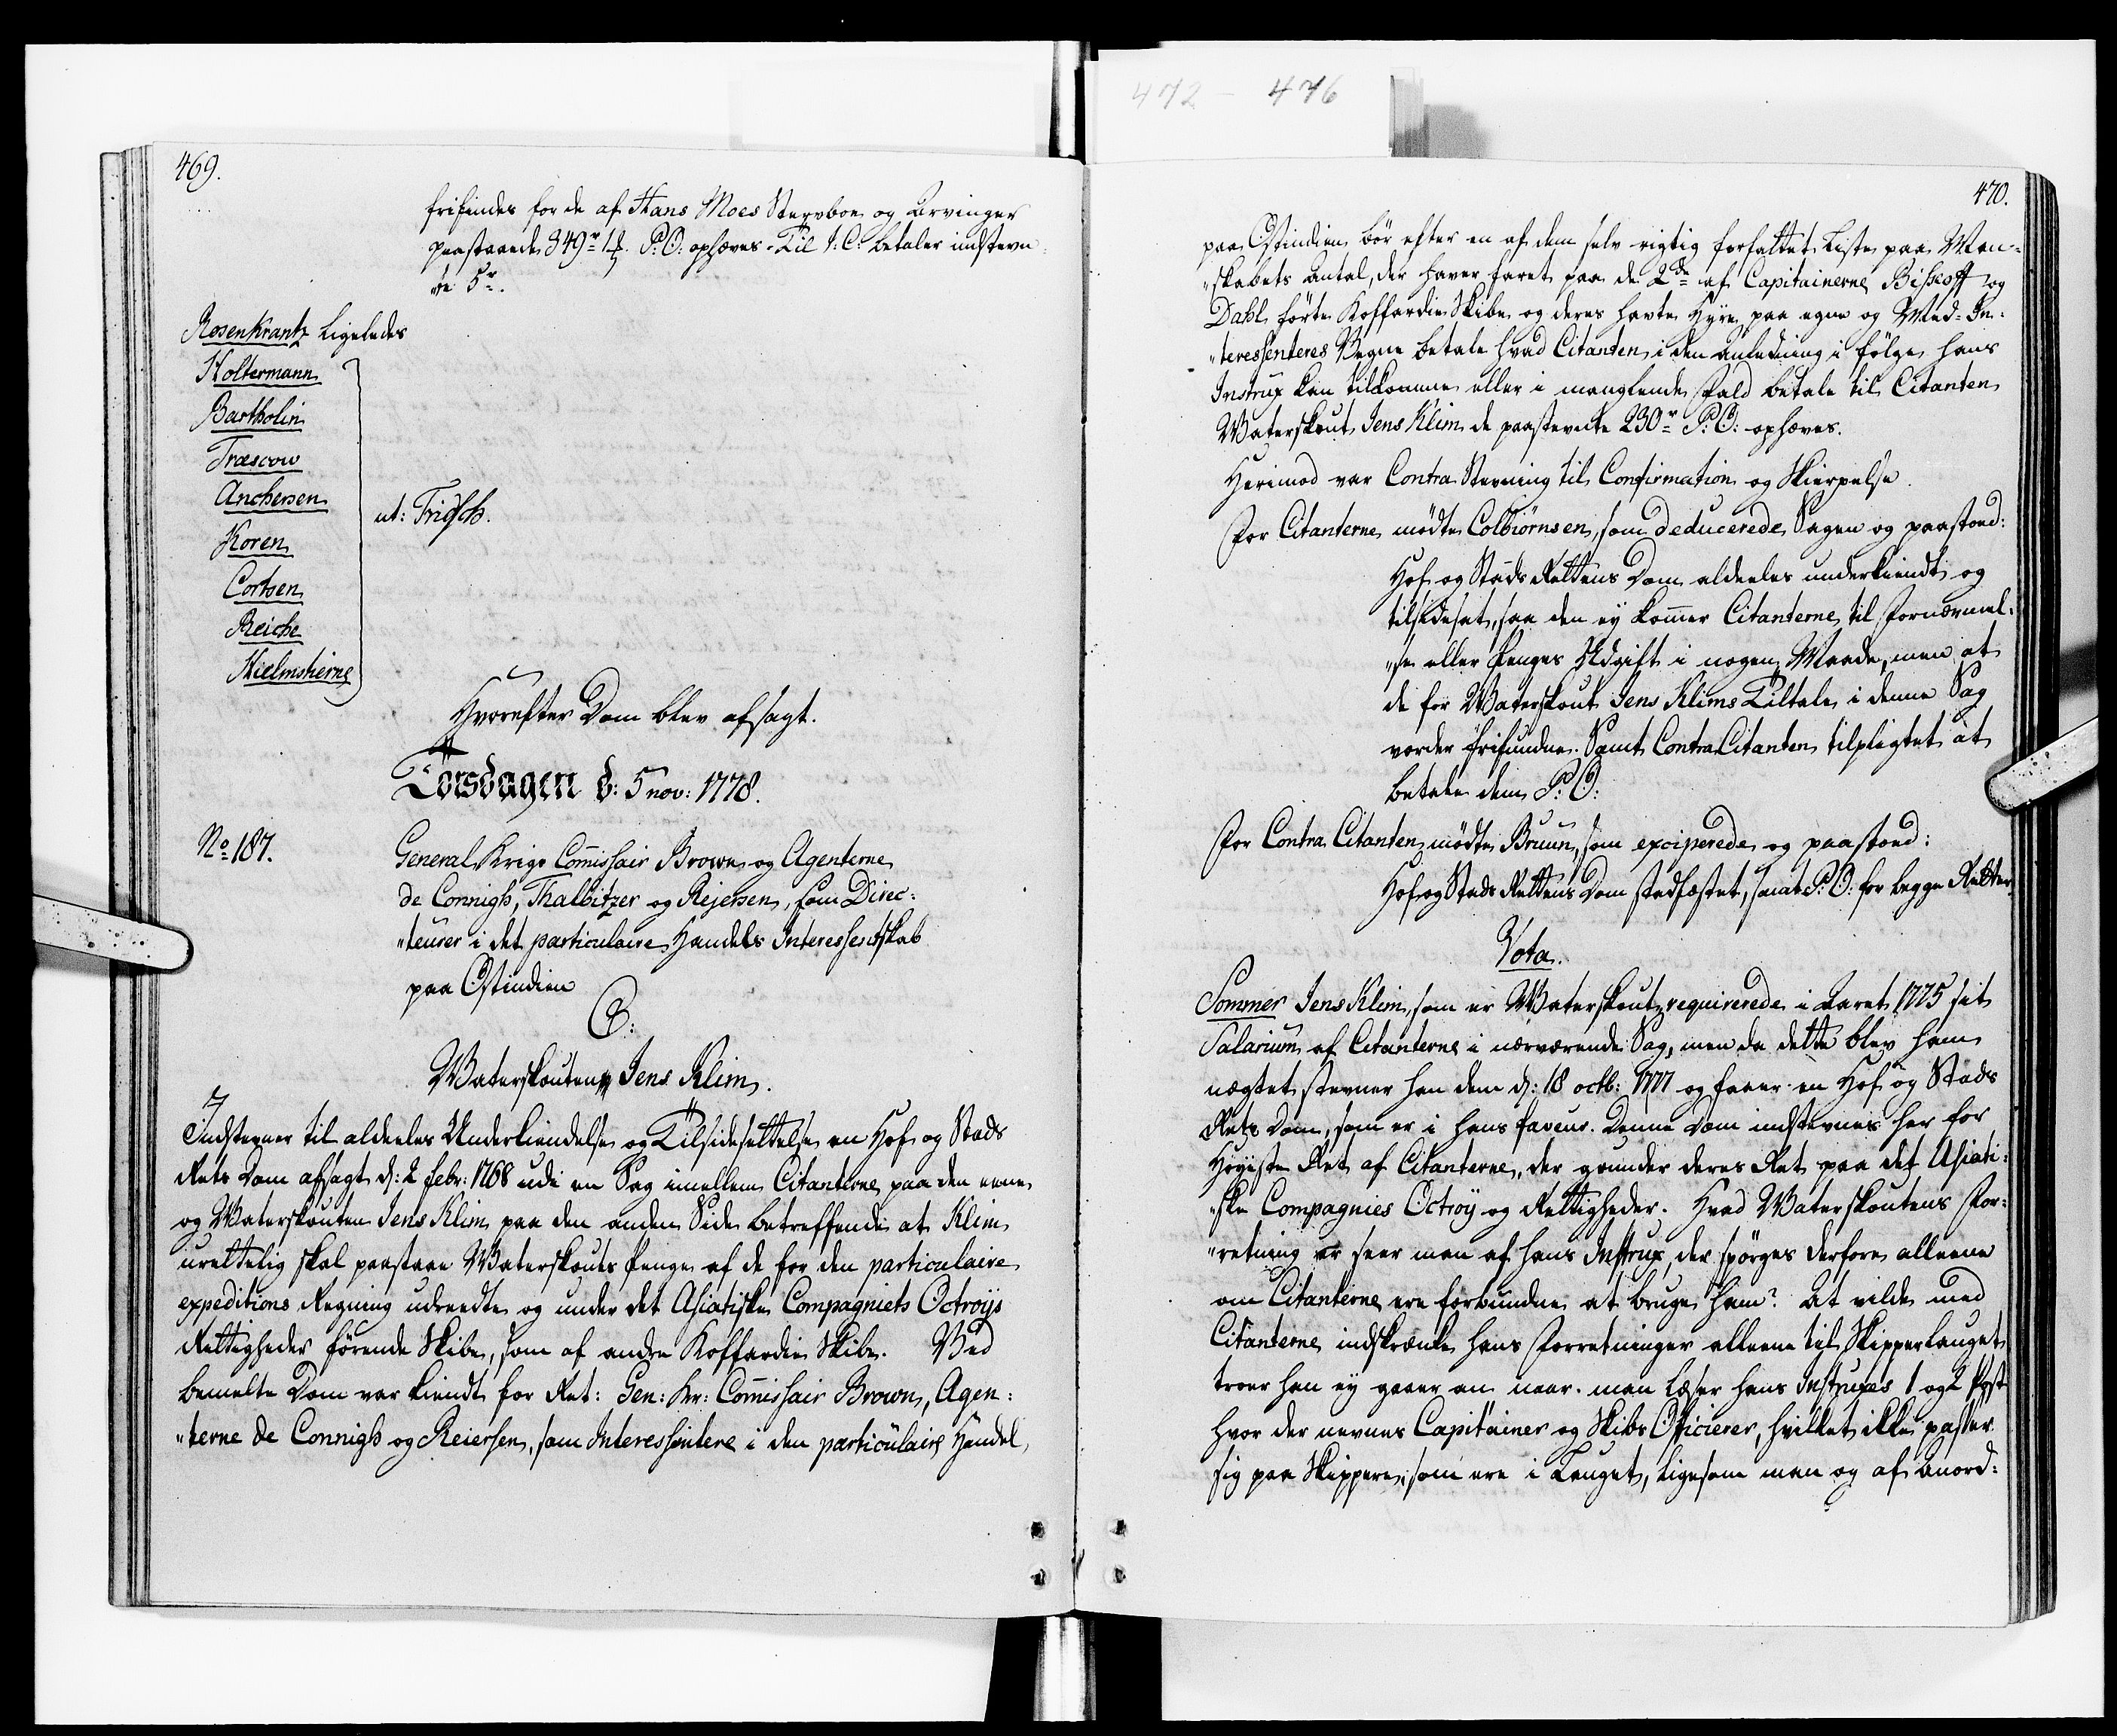 472 - 476
469.
frifindes for de af Hans Moes Stervboe og Arvinger
paastaaede 349 r 1 ß. P: O: ophæves. Til J: C: betaler indstevn
"te 5 r.
Rosenkrantz Ligeledes
Holtermann
Bartholin
Træscow
Anchersen
Koren
Cortsen
Reiche
Hielmstierne
ut: Fridsch.
Hvorefter Dom blev afsagt.
Torsdagen d: 5 nov: 1778.
No 187.
General Krigs Comissair Brown og Agenterne
de Connigh, Thalbitzer og Rejersen, som Direc:
"teurer i det particulaire Handels Interessentskab
paa Ostindien
C:
Waterskouten Jens Klim.
Indstevner til aldeeles Underkiendelse og Tilsidesettelse en Hof og Stads
Rets Dom afsagt d: 2 febr: 1768 udi en Sag imellem Citanterne paa den eene
og Waterskouten Jens Klim paa den anden Side betreffende at Klim
urettelig skal paastaae Waterskouts Penge af de for den particulaire
expeditions Regning udreedte og under det Asiatiske Compagniets Octroys
Rettigheder förende Skibe, som af andre Koffardie Skibe. Ved
bemelte Dom var kiendt for Ret: Gen: Kr: Comissair Brown, Agen:
"terne de Connigh og Reiersen, som Interessentere i den particulaire Handel
470.
paa Ostindien bör efter en af dem selv rigtig forfattet Liste paa Man-
"skabets Antal, der haver faret paa de 2de af Capitainerne Bisshoff og
Dahl förte Koffardie Skibe og deres havte Hyre paa egne og Med-In-
"teressenteres Vegne betale hvad Citanten i den anledning i fölge hans
Instrux kan tilkomme eller i manglende Fald betale til Citanten
Waterskout Jens Klim de paastevnte 230 r P: O: ophæves.
Herimod var Contra Stevning til Confirmation og Skierpelse.
For Citanterne mödte Colbiörnsen, som deducerede Sagen og paastoed:
Hof og Stads Rettens Dom aldeeles underkiendt og
tilsidesat, saa den ey komer Citanterne til Fornærmel-
"se eller Penges Udgift i nogen Maade, men at
de for Waterskout Jens Klims Tiltale i denne Sag
vorder frifundne. Samt ContraCitanten tilpligtet at
betale dem P: O:
For Contra Citanten mödte Bruun, som exciperede og paastoed:
Hof og Stads Rettens Dom stadfæstet, samt P: O: for begge Retter.
Vota.
Sommer Jens Klim, som er Waterskout, requirerede i Aaret 1775 sit
Salarium af Citanterne i nærværende Sag, men da dette blev ham
nægtet stevner han dem d: 18 octb: 1777 og faaer en Hof og Stads
Rets Dom, som er i hans faveur. Denne Dom indstevnes her for
Höyeste Ret af Citanterne, der grunder deres Ret paa det Asiati:
"ske Compagnies Octroy og Rettigheder. Hvad Waterskoutens For:
"retning er seer man af hans Instrux, der spörges derfore alleene
om Citanterne ere forbundne at bruge ham? At vilde med
Citanterne indskrænke hans Forretninger alleene til Skipperlauget
troer han ey gaaer an naar man læser hans Instruxes 1 og 2 Post
hvor der nevnes Capitainer og Skibs Officierer, hvilket ikke passer
sig paa Skippere, som ere i Lauget, ligesom man og af Anord: